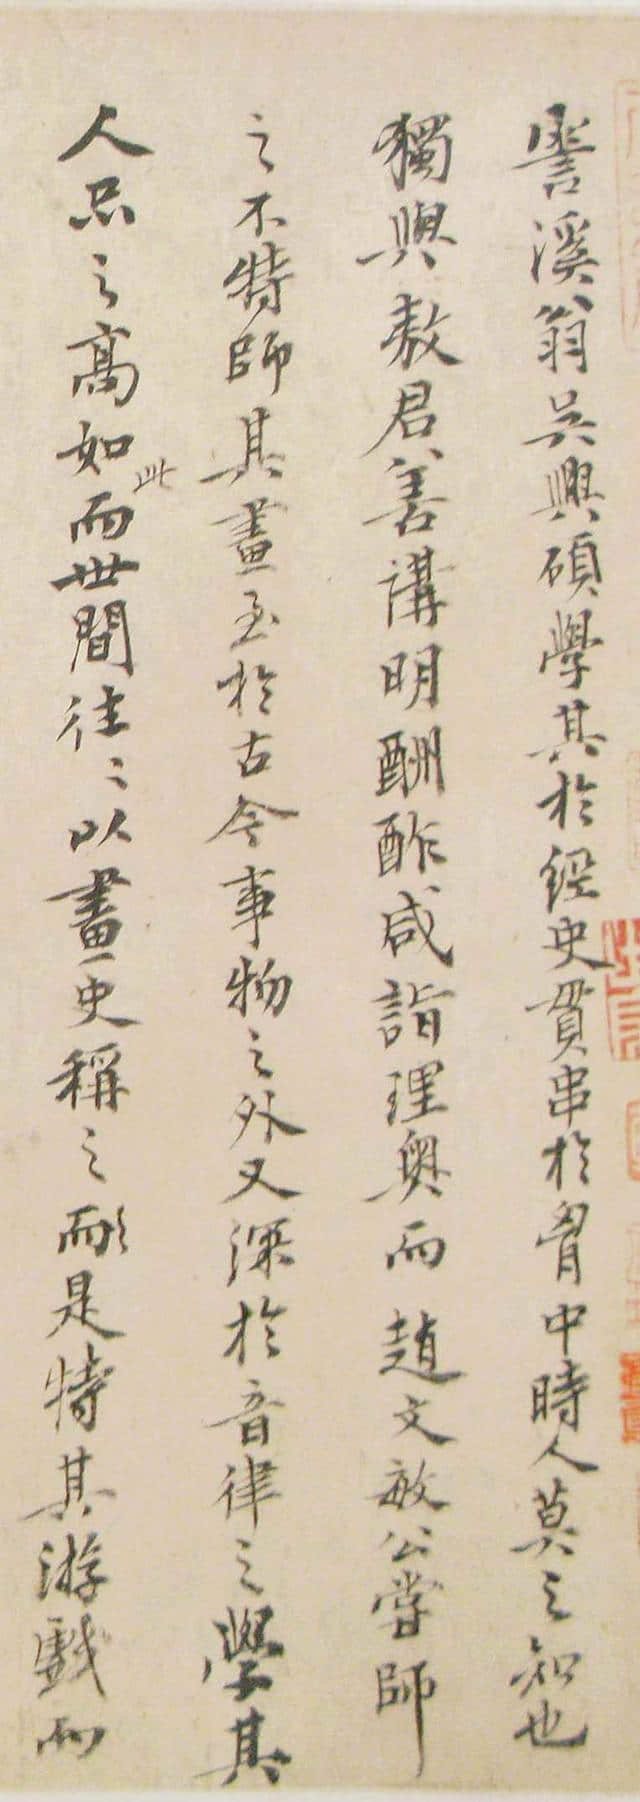 霅溪翁吳興碩學其於經史貫串於胷中時人莫之知也
獨與敖君善講明酬酢咸詣理奧而趙文敏公嘗師
之不特師其畫至於古今事物之外又深於音律之學其
人品之高如此而世間往〻以畫史稱之耶是特其游戲而